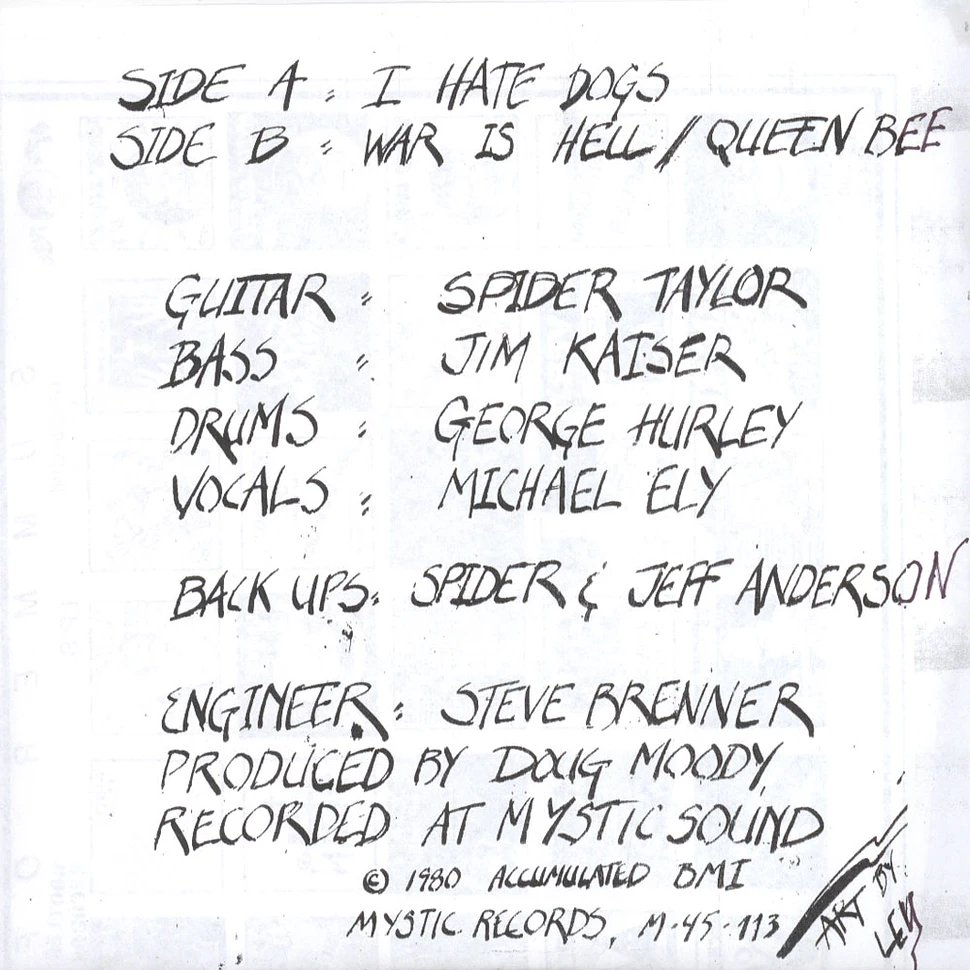 SIDE A : I HATE DOGS
SIDE B : WAR IS HELL / QUEEN BEE
GUITAR : SPIDER TAYLOR
BASS : JIM KAISER
DRUMS : GEORGE HURLEY
VOCALS : MICHAEL ELY
BACK UPS: SPIDER & JEFF ANDERSON
ENGINEER : STEVE BRENNER
PRODUCED BY DOUG MOODY
RECORDED AT MYSTIC SOUND
© 1980 ACCUMULATED BMI
MYSTIC RECORDS, M-45-113
ART BY